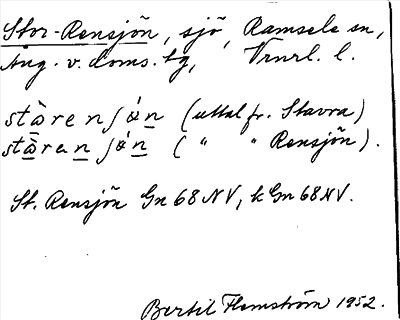 Stor-Rensjön, sjö, Ramsele sn,
Ång. v. doms. tg, Vrnrl. l.
stàrenʃǿn (uttal fr. Stavra)
stàrenʃǿn ( " " Rensjön).
St. Rensjön Gn 68 NV, k Gn 68 NV.
Bertil Flemström 1952.